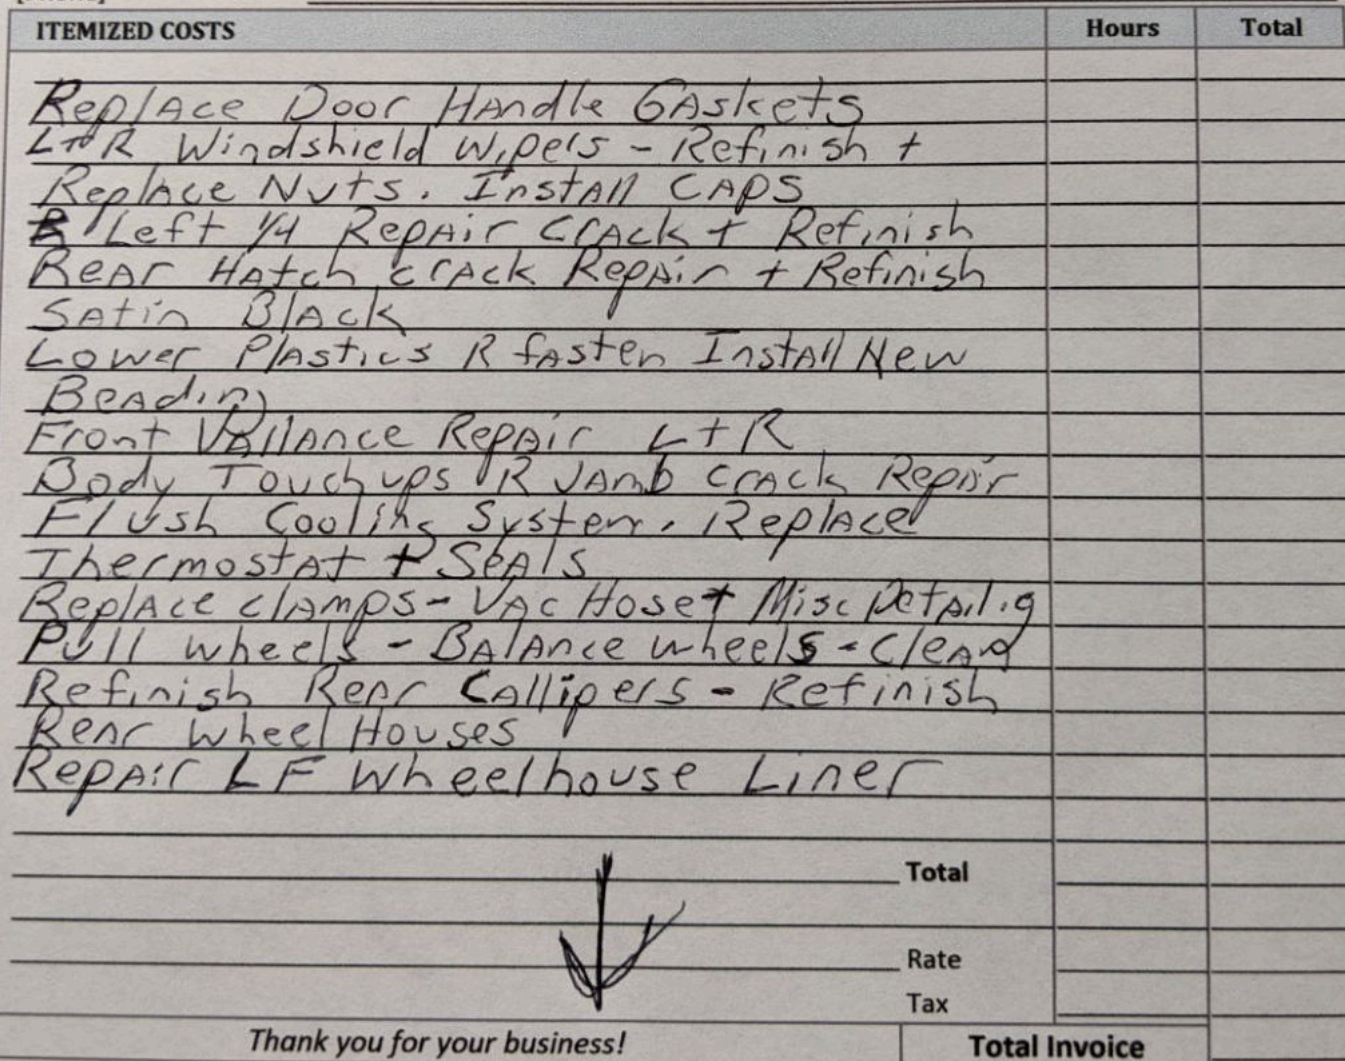 ITEMIZED COSTS Hours Total
Replace Door Handle Gaskets
L+R Windshield Wipers - Refinish +
Replace Nuts. Install Caps
Left 1/4 Repair Crack + Refinish
Rear Hatch crack Repair + Refinish
Satin Black
Lower Plastics R fasten Install New
Beading
Front Vallance Repair L+R
Body Touchups R Jamb crack Repair
Flush Cooling System. Replace
Thermostat + Seals
Replace clamps - Vac Hose + Misc Detailig
Pull wheels - Balance wheels - Clean
Refinish Rear Callipers - Refinish
Rear Wheel Houses
Repair LF Wheelhouse Liner
Total
Rate
Tax
Thank you for your business! Total Invoice